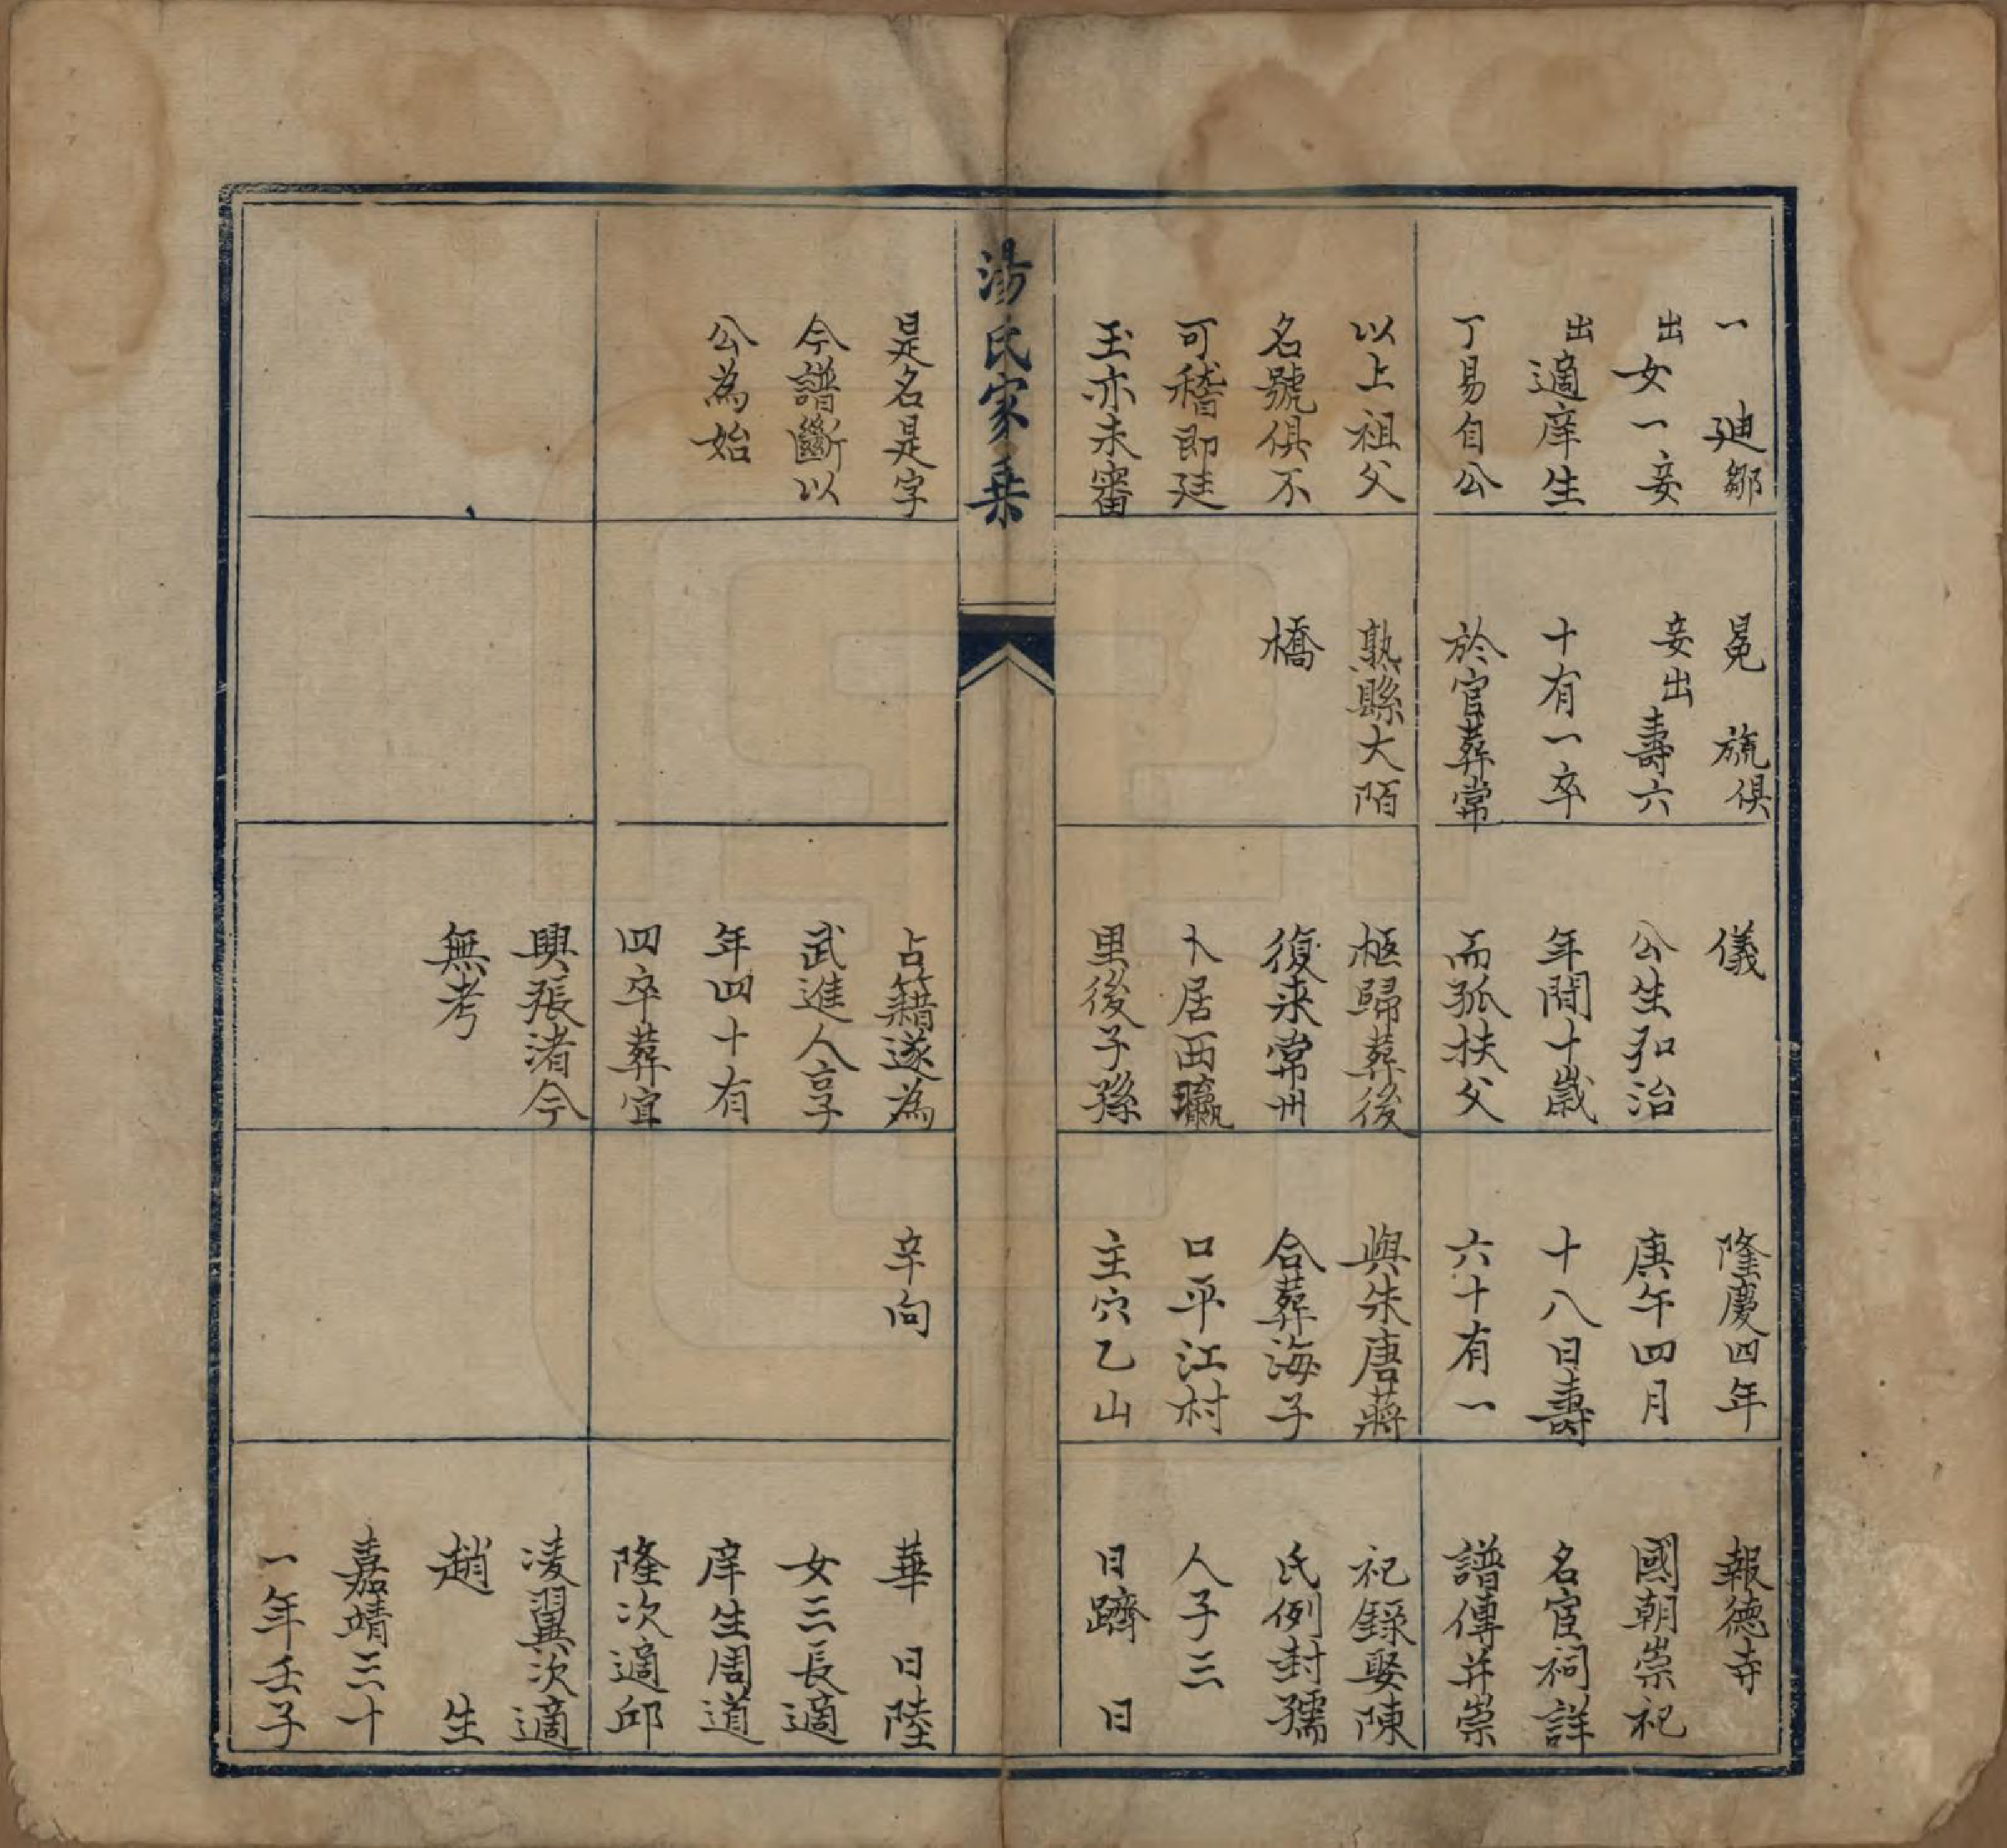 一廸鄒
出女一妾
出適庠生
丁易自公
以上祖父
名號俱不
可稽即廷
玉亦未審
是名是字
今譜斷以
公為始
冕旒俱
妾出壽六
十有一卒
於官葬常
熟縣大陌
橋
儀
公生弘治
年間十歲
而孤扶父
柩歸葬後
復来常州
卜居西瀛
里後子孫
占籍遂為
武進人享
年四十有
四卒葬宜
興張渚今
無考
隆慶四年
庚午四月
十八日壽
六十有一
與朱唐蔣
合葬海子
口平江村
主穴乙山
辛向
報德寺
國朝崇祀
名宦祠詳
譜傳并崇
祀錄娶陳
氏例封孺
人子三
日躋日
華日陸
女三長適
庠生周道
隆次適邱
凌翼次適
趙生
嘉靖三十
一年壬子
湯氏家乗